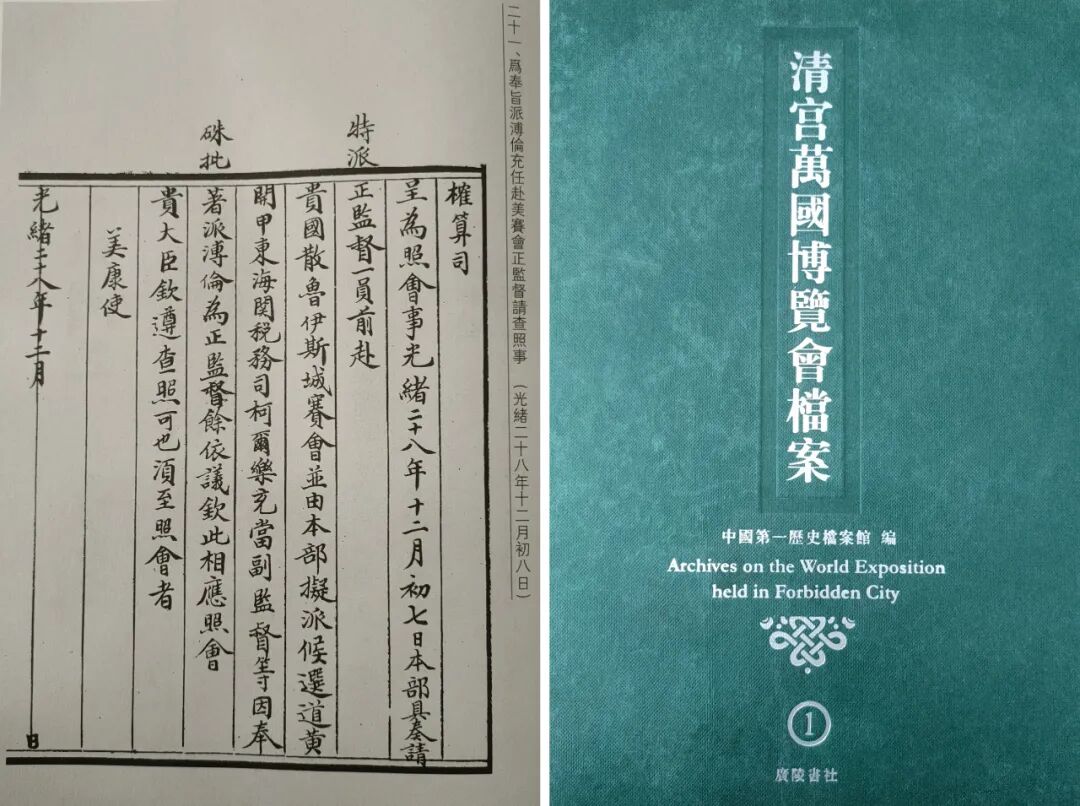 二十一、爲奉旨派溥倫充任赴美賽會正監督請查照事 (光緒二十八年十二月初八日)
榷算司
呈為照會事光緒二十八年十二月初七日本部具奏請
特派
正監督一員前赴
貴國散魯伊斯城賽會並由本部擬派候選道黃
開甲東海関税務司柯爾樂充當副監督等因奉
硃批
著派溥倫為正監督餘依議欽此相應照會
貴大臣欽遵查照可也須至照會者
美康使
光緒二十八年十二月
日
清宮萬國博覽會檔案
中國第一歷史檔案館 編
Archives on the World Exposition
held in Forbidden City
1
廣陵書社